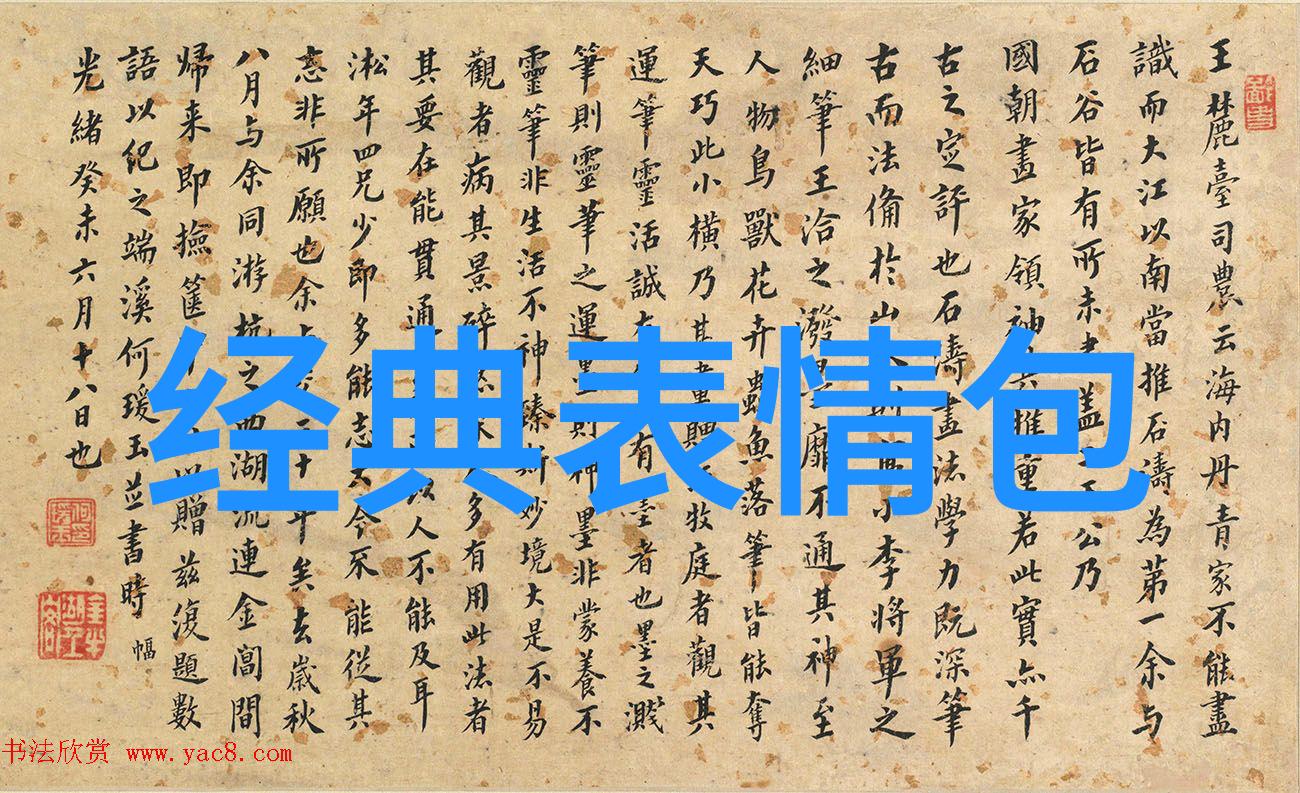 王麓臺司農云海内丹青家不能盡
識而大江以南當推石濤為第一余与
石谷皆有所未逮盖 公乃
國朝畫家領神 推重若此實為千
古之定評也石濤畫法學力既深筆
古而法備於山 小李將軍之
細筆王洽之潑墨靡不通其神至
人物鳥獸花卉蟲魚落筆皆能奪
天巧此小橫乃其畫贈 牧庭者觀其
運筆靈活誠 有 者也墨之濺
筆則靈筆之運墨則神墨非蒙養不
靈筆非生活不神臻斯妙境大是不易
觀者病其景碎 多有用此法者
其要在能貫通 以人不能及耳
淞年四兄少即多能志 今不能從其
志非所願也余 二十年矣去歲秋
八月与余同游杭之西湖流連金閶間
歸来即撿篋 以贈茲復題數
語以紀之端溪何瑗玉並書時
幅
光緒癸未六月十八日也
经典表情包
书法欣赏 www.yac8.com